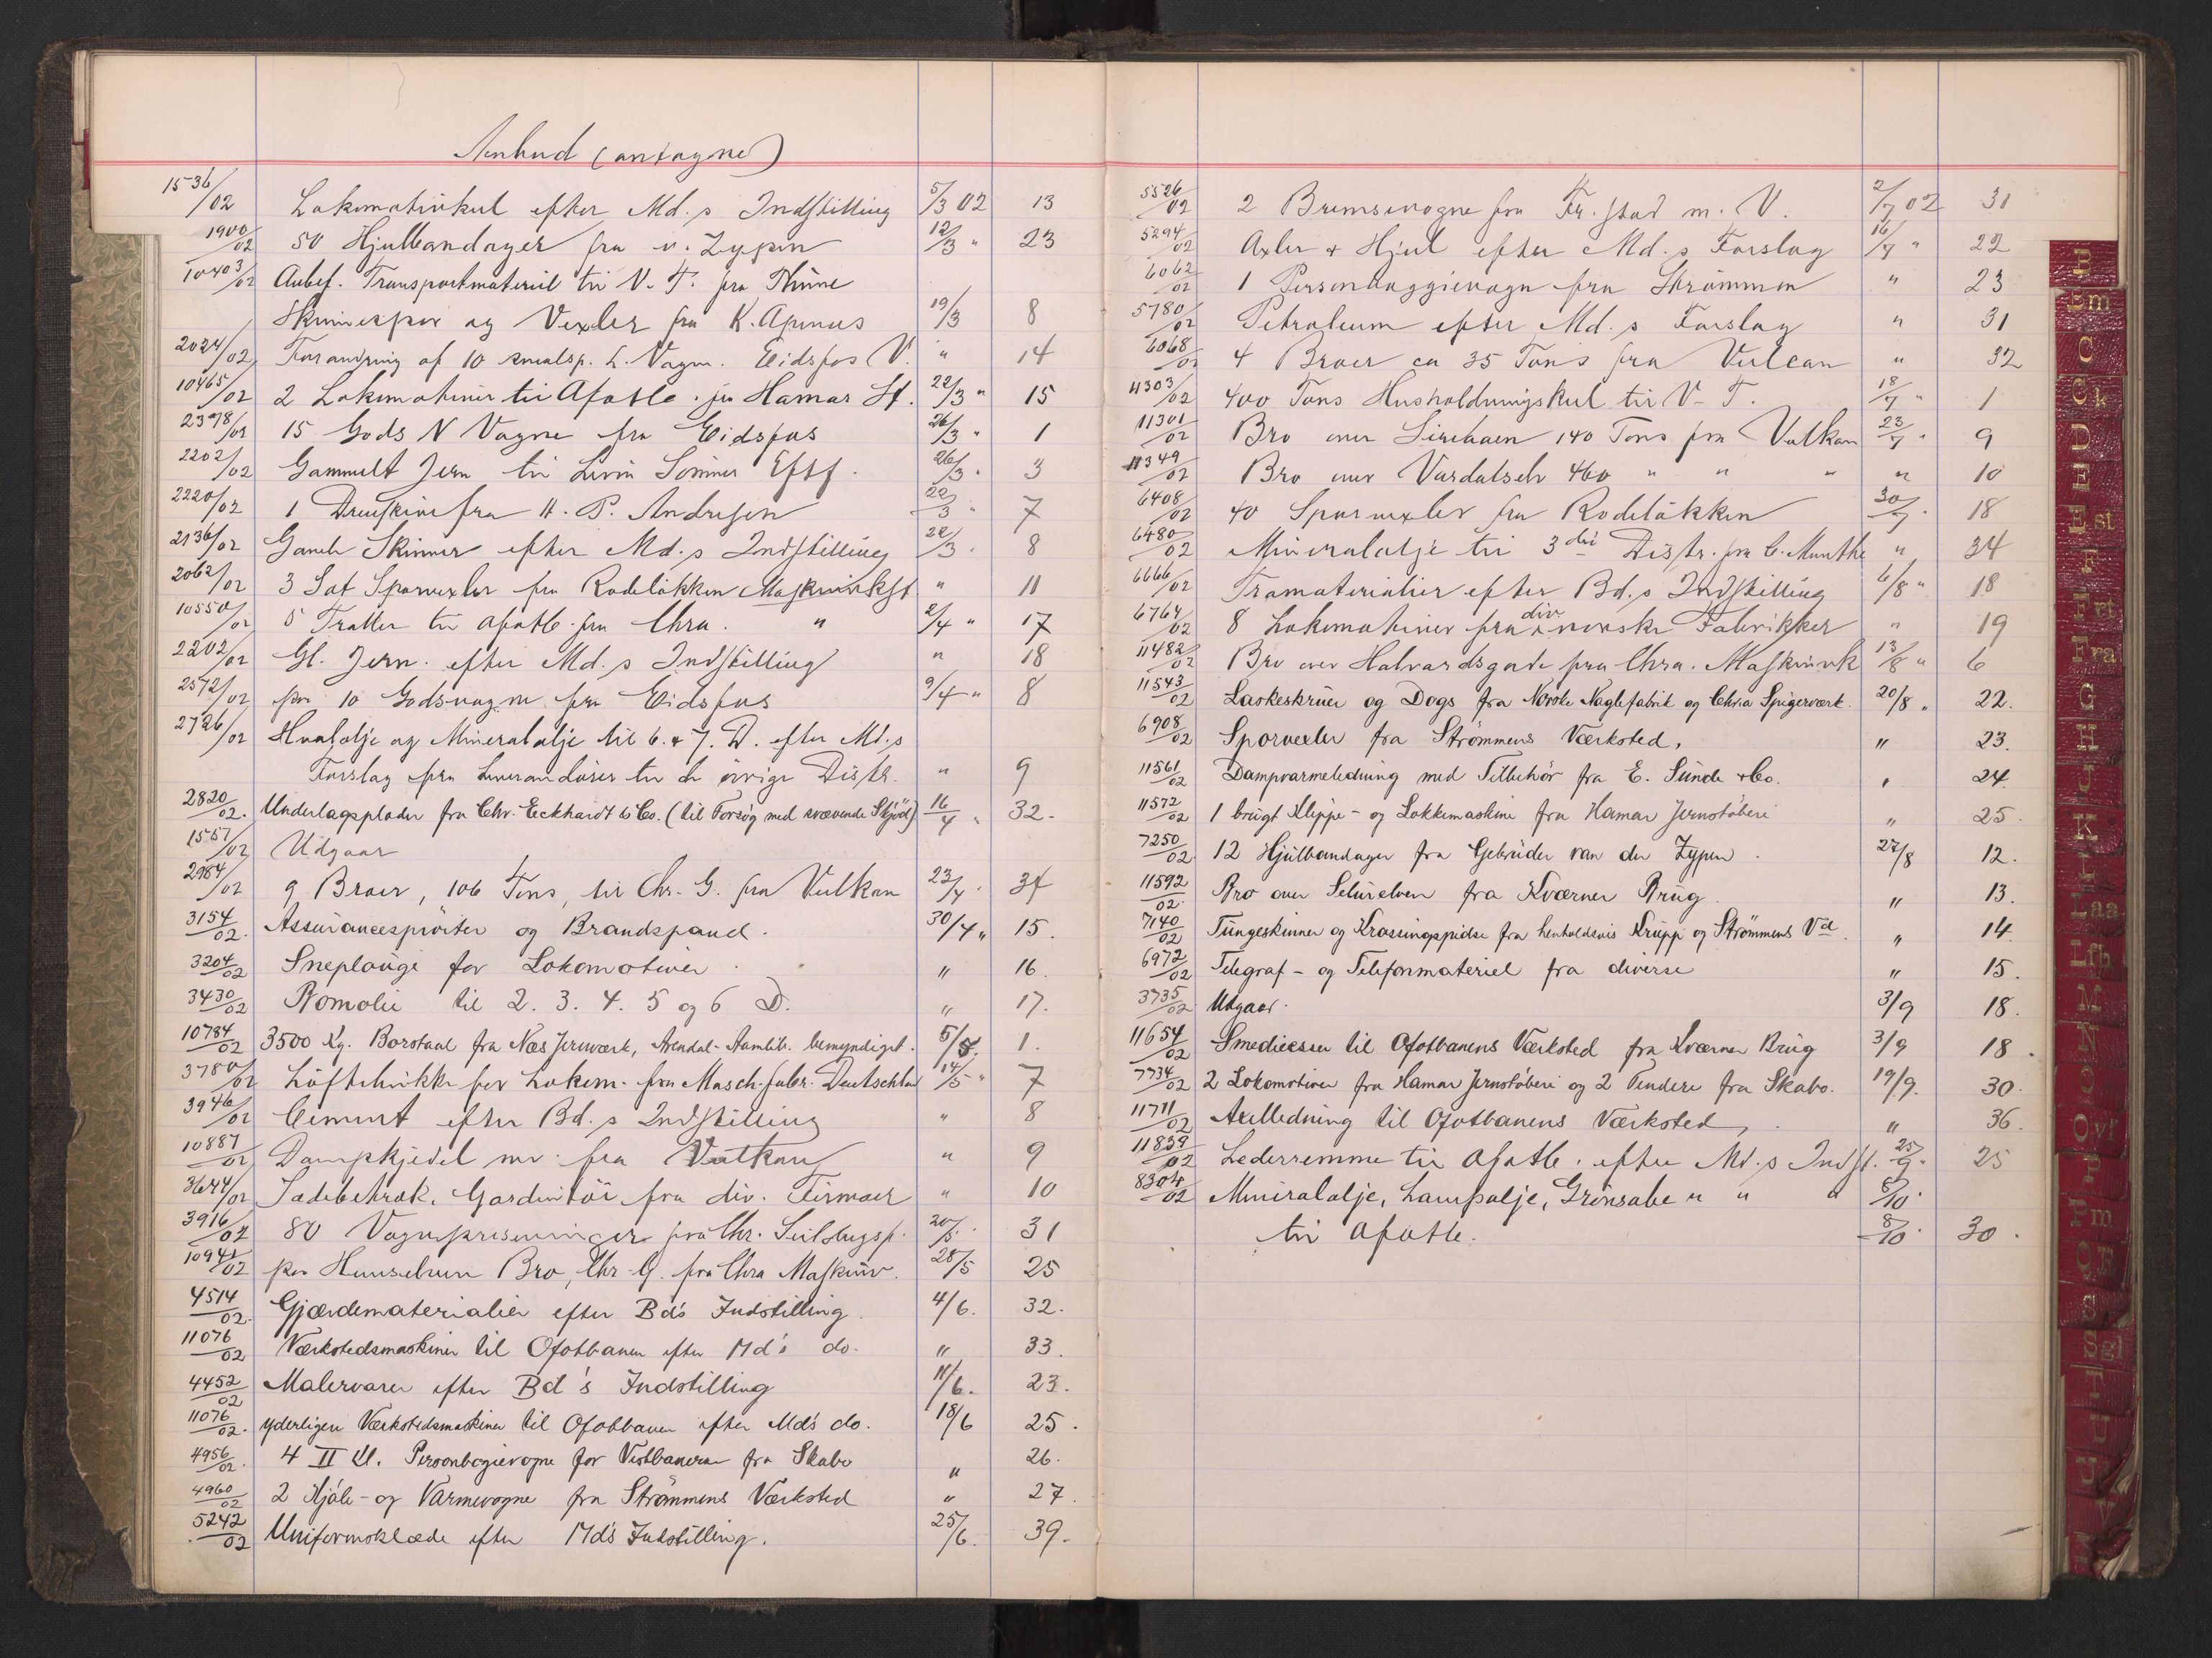 Anbud (antagne)
1536/02 Lokomotivkul efter Md.s Indstilling 5/3 02 13
1900/02 50 Hjulbandager fra v. Zypen 12/3 " 23
10403/02 Anbef. Transportmateriel til V. T. fra Thune
Skinnespor og Vexler fra K. Apenes 19/3 8
2024/02 Forandring af 10 smalsp. L. Vogne. Eidsfos V. " 14
10465/02 2 Lokomotiver til Ofotb. fra Hamar St. 22/3 " 15
2378/02 15 Gods N Vogne fra Eidsfos 26/3 " 1
2202/02 Gammelt Jern til Levin Sommer Eftf. 26/3 " 3
2220/02 1 fra H. P. Andresen 22/3 " 7
2136/02 Gamle Skinner efter Md.s Indstilling 22/3 " 8
2062/02 3 Sat Sporvexler fra Rodeløkken Maskinvkst " 11
10550/02 5 Traller til Ofotb. fra Chra. " 2/4 " 17
2202/02 Gl. Jern. efter Md.s Indstilling " 18
2572/02 paa 10 Godsvogne fra Eidsfos 9/4 " 8
2726/02 Hvalolje og Mineralolje til 6. & 7. D. efter Md.s
Forslag fra Leverandører til de øvrige Distr. " 9
2820/02. Underlagsplader fra Chr. Eckhardt & Co. (til Forsøg med svævende Skjød) 16/4 " 32.
1557/02 Udgaar
2984/02 9 Broer, 106 Tons, til Chr.-G. fra Vulkan 23/4 " 34
3154/02. Assurancesprøiter og Brandspand. 30/4 " 15.
3204/02 Sneplouge for Lokomotiver " 16.
3430/02 Romolie til 2. 3. 4. 5 og 6 D. " 17.
10784/02 3500 Kg. Borstaal fra Næs Jernværk, Arendal-Aamlib. bemyndiget. 5/5. 1.
3780/02 Løftebukke for Lokom. fra Masch. fabr. Deutschland 14/5 " 7
3946/02 Cement efter Bd.s Indstilling " 8
10887/02 Dampkjedel mv. fra Vulkan " 9
3644/02 Sædebetræk, Gardintöi fra div. Firmaer " 10
3916/02 80 Vognpresenninger fra Chr. Seildugsf. 20/5. 31
10941/02 paa Hunselven Bro, Chr-G. fra Chra Maskinv. 28/5 25
4514/02. Gjærdematerialier efter Bd's Indstilling. 4/6. 32.
11076/02 Værkstedsmaskiner til Ofotbanen efter Md's do. " 33.
4452/02 Malervarer efter Bd's Indstilling 11/6. 23.
11076/02. yderligere Værkstedsmaskiner til Ofotbanen efter Md's do. 18/6 25.
4956/02. 4 II Kl. Personbogievogne for Vestbanerne fra Skabo " 26.
4960/02 2 Kjøle- og Varmevogne fra Strømmens Værksted " 27.
5242/02 Uniformsklæde efter Md's Indstilling. 25/6. 39.
5526/02 2 Bremsevogne fra Fr.stad m. V. 2/7 02 31
5294/02 Axler & Hjul efter Md.s Forslag 16/7 " 22
6062/02 1 Personboggievogn fra Strømmen " 23
5780/02 Petroleum efter Md.s Forslag " 31
6068/02 4 Broer ca 35 Tons fra Vulcan " 32
4303/02 400 Tons Husholdningskul til V. T. 18/7 " 1
11301/02 Bro over Sirehaen 140 Tons fra Vulkan 23/7 " 9
11349/02 Bro over Værdalselv 460 " " " " 10
6408/02 40 Sporvexler fra Rodeløkken 30/7. 18
6480/02 Mineralolje til 3die Distr. fra C. Munthe " 34
6666/02 Tramaterialier efter Bd.s Indstilling 6/8 " 18
6764/02 8 Lokomotiver fra div norske Fabrikker " 19
11482/02 Bro over Halvardsgade fra Chra. Maskinvk 13/8 " 6
11543/02 Laskeskruer og Dogs fra Norske Naglefabrik og Chria Spigerværk. 20/8 " 22.
6908/02 Sporvexler fra Strømmens Værksted. " 23.
11561/02 Dampvarmeledning med Tilbehör fra E. Sunde & Co. " 24.
11572/02 1 brugt Klippe- og Lokkemaskine fra Hamar Jernstøberi " 25.
7250/02. 12 Hjulbandager fra Gebrüder van der Zypen. 27/8 12.
11592/02. Bro over Selurelven fra Kværner Brug. " 13.
7140/02 Tungeskinner og Krossingspidse fra henholdsvis Krupp og Strømmens Vd. " 14.
6972/02 Telegraf- og Telefonmateriel fra diverse " 15.
3735/02 Udgaar. 3/9 18.
11654/02 Smedieesser til Ofotbanens Værksted fra Kværner Brug 3/9 18.
7734/02 2 Lokomotiver fra Hamar Jernstøberi og 2 Tendere fra Skabo. 19/9. 30.
11711/02 Axelledning til Ofotbanens Værksted, " 36.
11839/02 Lederremme til Ofotb. efter Md.s Indst. 25/9 " 25
8304/02 Mineralolje, Lampolje, Grønsabe " " " 8/10.
til Ofotb. 8/10. 30.
B
Bm
C
Ck
D
E
Est
F
Frt
Fra
G
H
J
K
L
Laa
Lfh
M
N
O
Ovf
P
Pm
Q R
S
Sgl
T
U
V